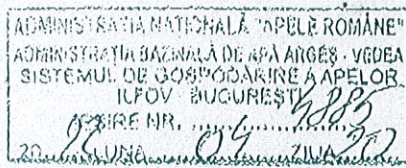 ADMINISTRAȚIA NAȚIONALĂ "APELE ROMÂNE"
ADMINISTRAȚIA BAZINALĂ DE APĂ ARGEȘ - VEDEA
SISTEMUL DE GOSPODĂRIRE A APELOR
ILFOV - BUCUREȘTI
IEȘIRE NR. 4885
20 LUNA 04 ZIUA 20